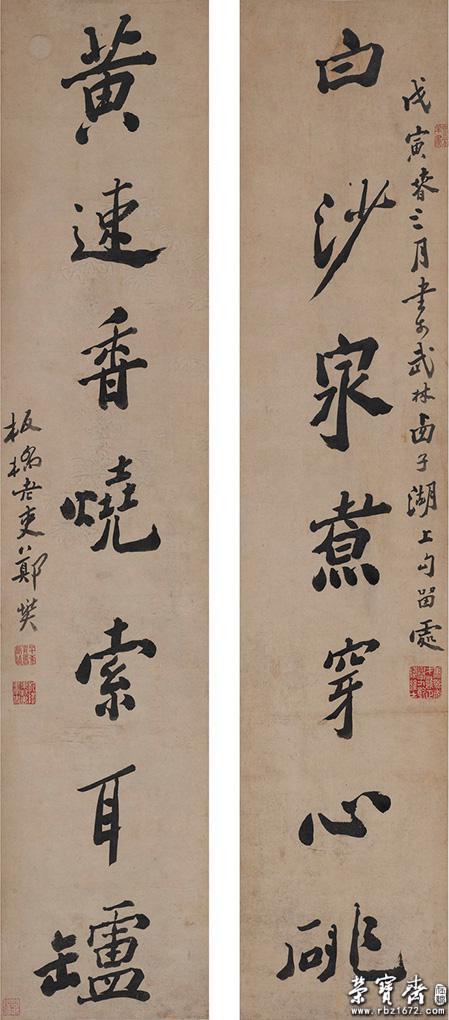 戊寅春三月書於武林西子湖上勾留處
白沙泉煮穿心硯
黃速香燒索耳罏
板橋老吏鄭燮
榮寶齋
www.rbz1672.com